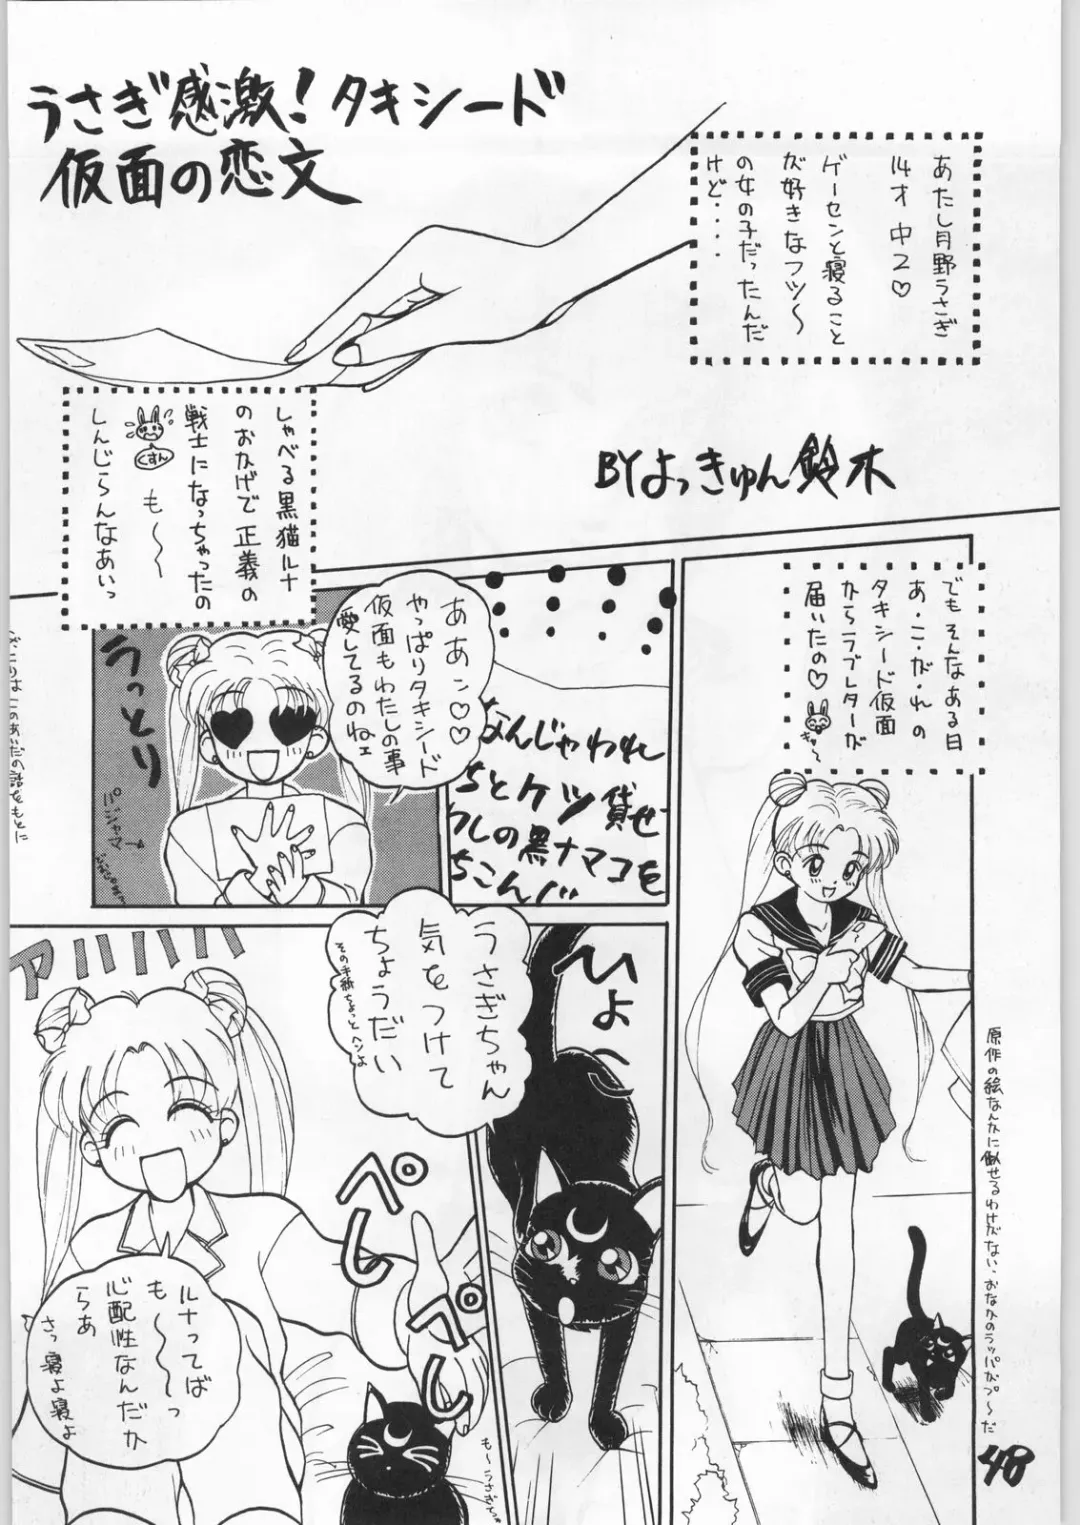 うさぎ感激！タキシード
仮面の恋文
あたし月野うさぎ
14才 中2♡
ゲーセンと寝ること
が好きなフツ〜
の女の子だったんだ
けど・・・・
しゃべる黒猫ルナ
のおかげで正義の
戦士になっちゃったの
くすん
も〜〜
しんじらんなあいっ
BYよっきゅん鈴木
でもそんなある日
あ・こ・が・れの
タキシード仮面
からラブレターが
届いたの♡
なんじゃわれ
ちとケツ貸せ
わしの黒ナマコを
ああン♡♡
やっぱりタキシード
仮面もわたしの事
愛してるのねェ
うっとり
パジャマ→
原作の絵なんかに似せるわけがない、おなかのラッパがプ〜だ
ひょ〜
うさぎちゃん
気をつけて
ちょうだい
その手紙ちょっとヘンよ
アハハハハ
ペし
ペし
ルナってば
も〜〜っ
心配性なんだか
らぁ
さっ寝よ寝よ
48